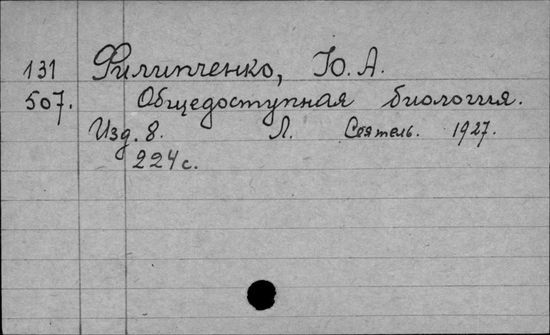 131 Филипченко, Ю. А.
507. Общедоступная биология.
Изд. 8. Л. Сеятель. 1927.
224 с.